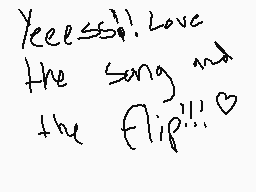 Yeeesss!! Love
the song and
the flip!!! ♡